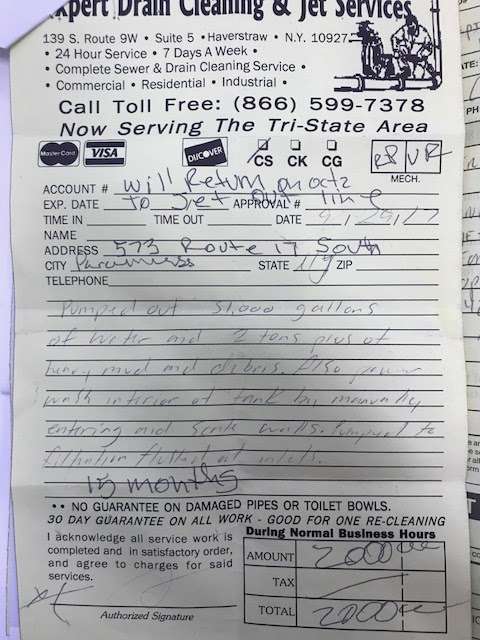 Expert Drain Cleaning & Jet Services
139 S. Route 9W • Suite 5 • Haverstraw • N.Y. 10927
• 24 Hour Service • 7 Days A Week •
• Complete Sewer & Drain Cleaning Service •
• Commercial • Residential • Industrial •
Call Toll Free: (866) 599-7378
Now Serving The Tri-State Area
MasterCard VISA DISCOVER CS CK CG
MECH.
ACCOUNT # Will Return on oct 2
EXP. DATE To Jet out APPROVAL # line
TIME IN TIME OUT DATE 9/29/17
NAME
ADDRESS 573 Route 17 South
CITY STATE ZIP
TELEPHONE
Pumped out gallons
of water and 2 tons plus of
mud and debris. Also power
wash interior of tank by manually
entering and walls. Pumped to
filtration at
15 months
•• NO GUARANTEE ON DAMAGED PIPES OR TOILET BOWLS.
30 DAY GUARANTEE ON ALL WORK - GOOD FOR ONE RE-CLEANING
During Normal Business Hours
I acknowledge all service work is
completed and in satisfactory order,
and agree to charges for said
services.
AMOUNT 2000
TAX
TOTAL 2000
Authorized Signature